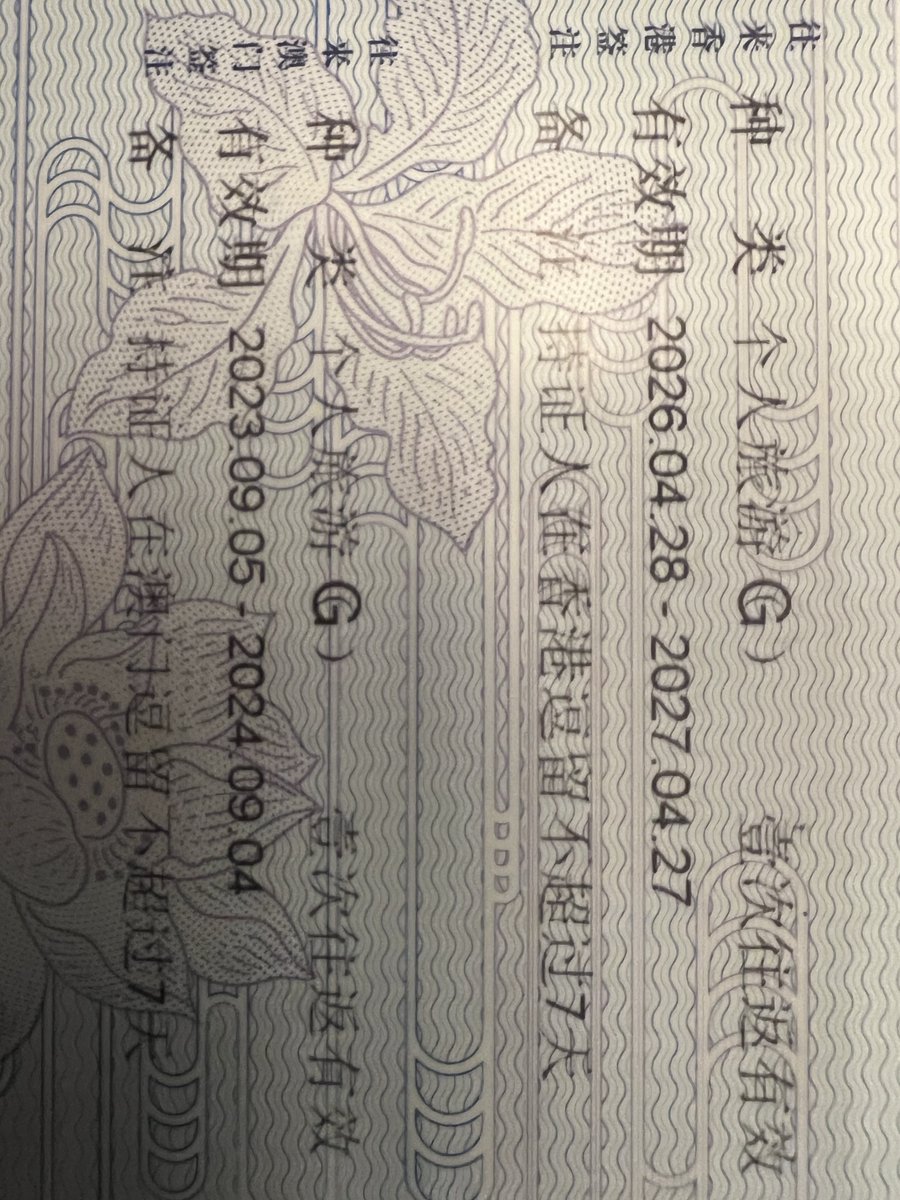 往来香港签注
种 类 个人旅游(G) 壹次往返有效
有效期 2026.04.28 - 2027.04.27
备 注 持证人在香港逗留不超过7天
往来澳门签注
种 类 个人旅游(G) 壹次往返有效
有效期 2023.09.05 - 2024.09.04
备 注 持证人在澳门逗留不超过7天